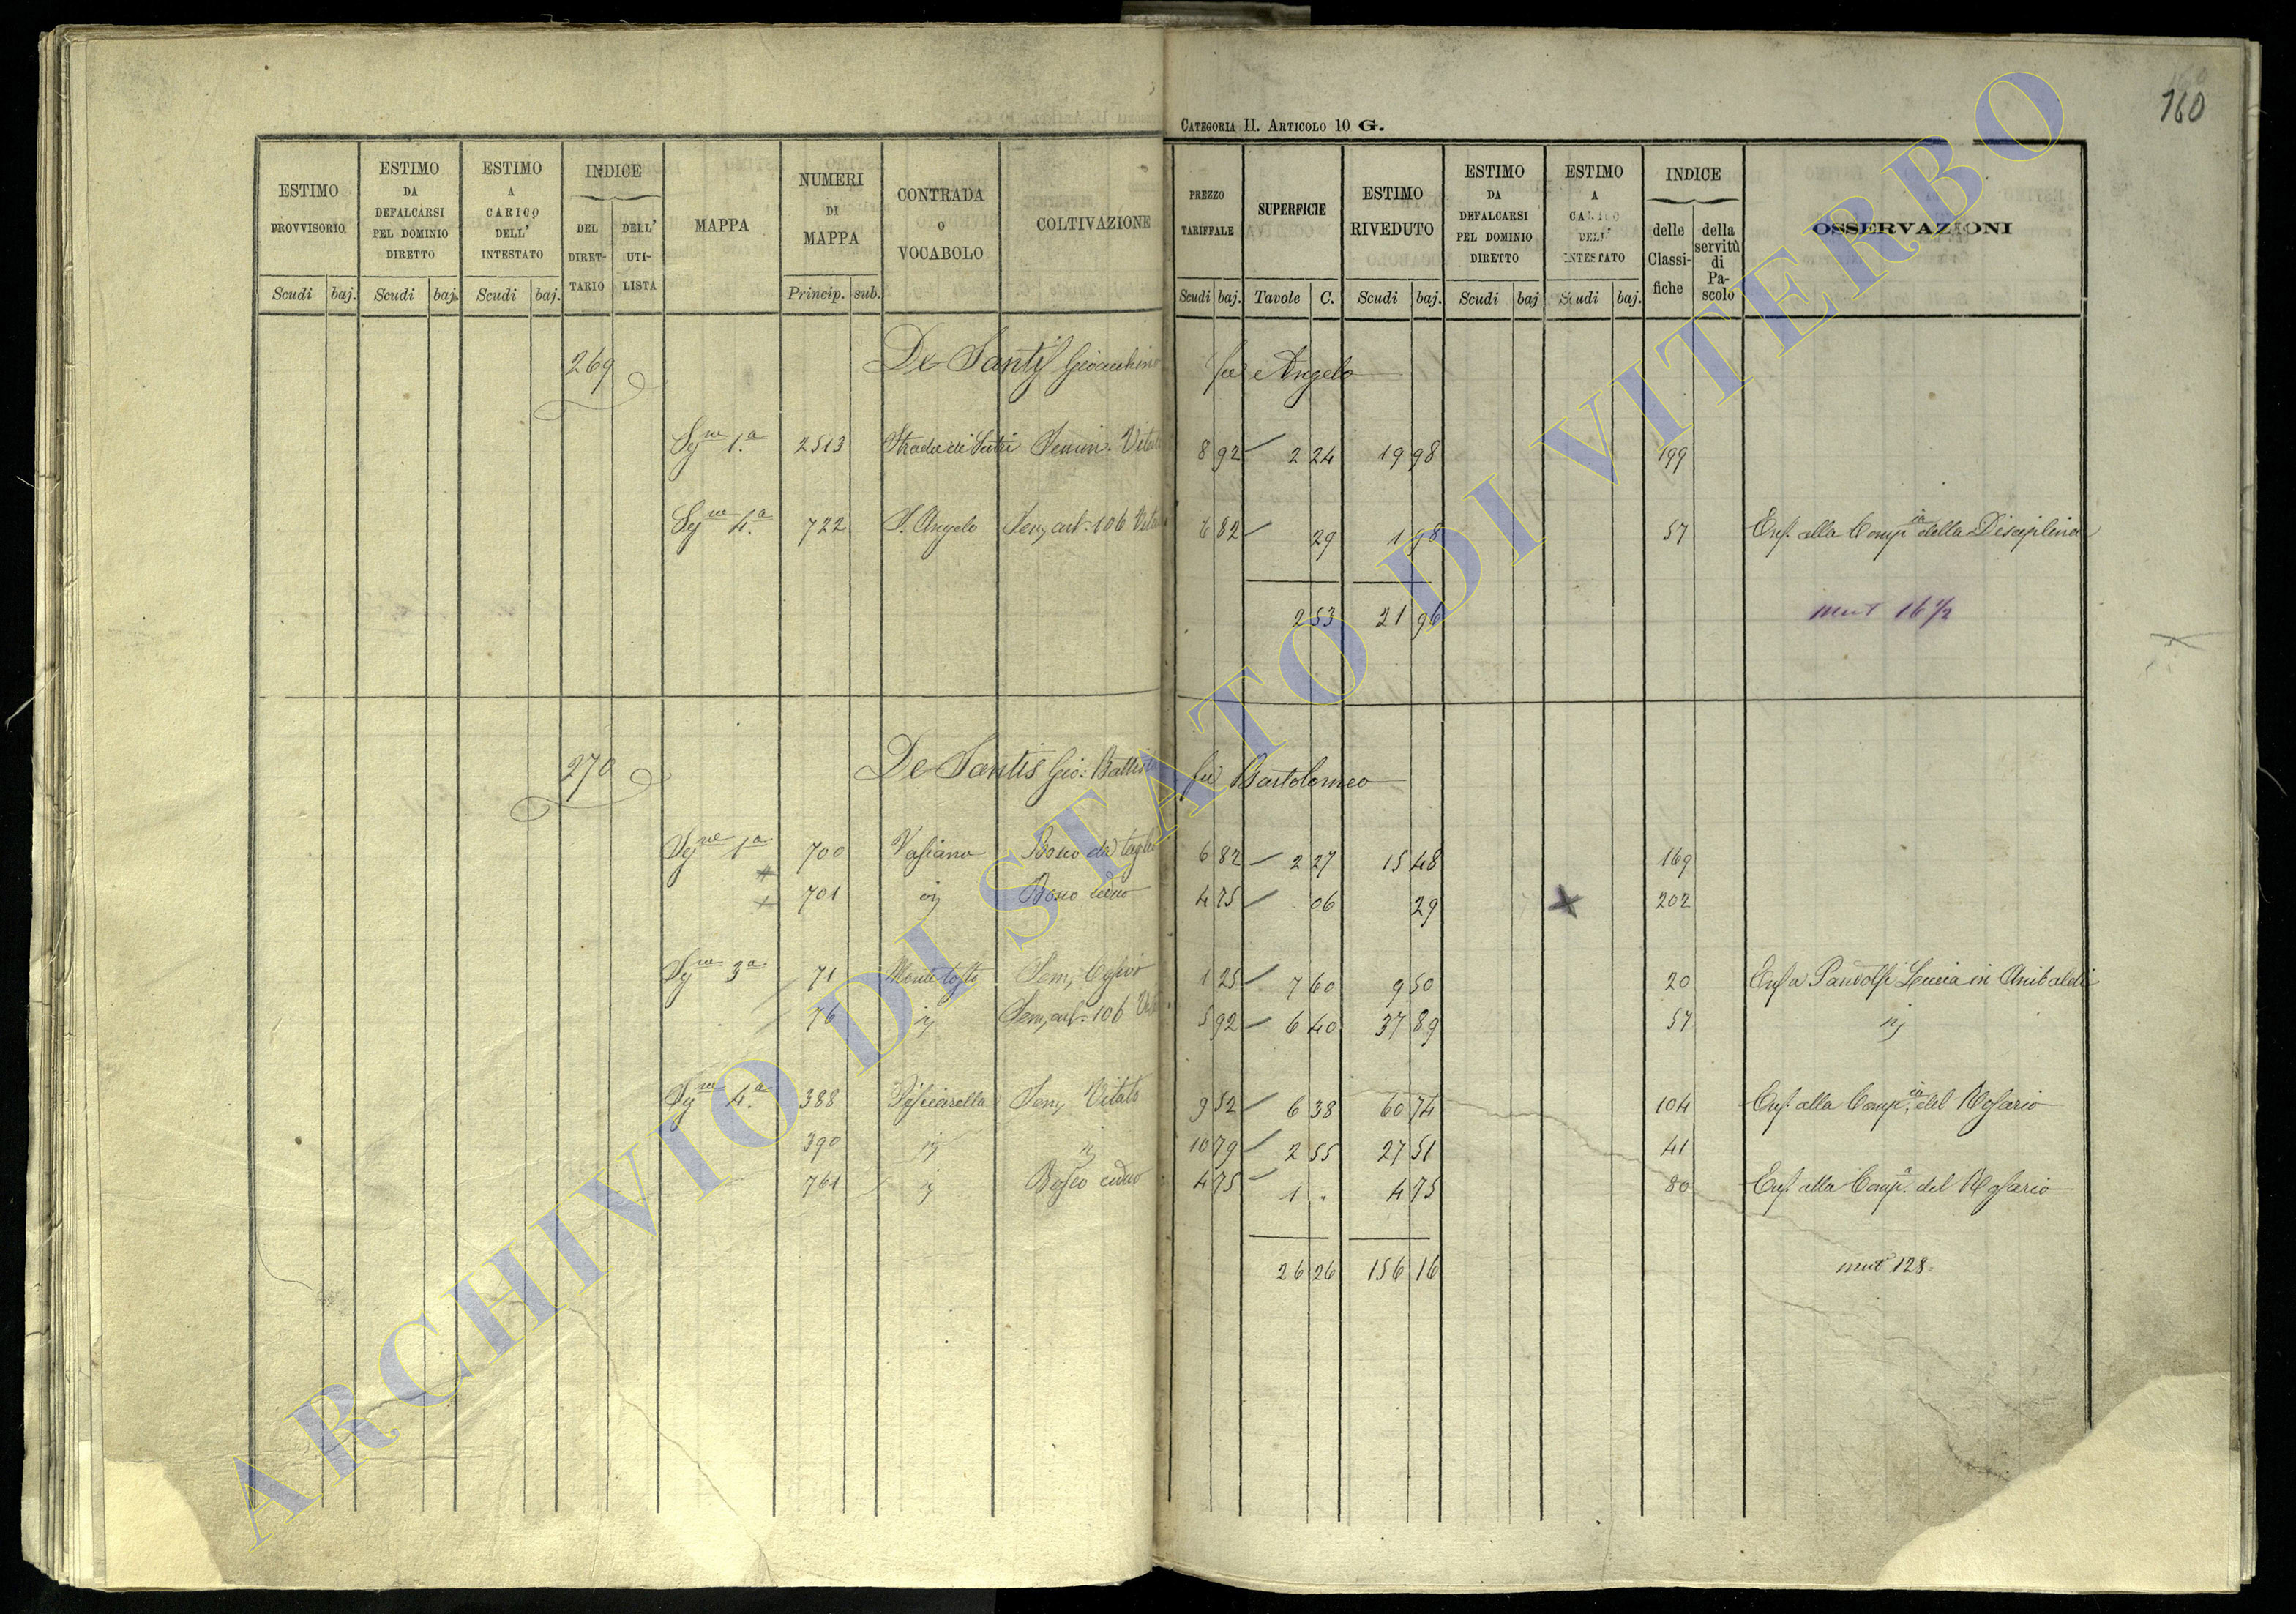 160
CATEGORIA II. ARTICOLO 10 G.
ESTIMO PROVVISORIO. ESTIMO DA DEFALCARSI PEL DOMINIO DIRETTO ESTIMO A CARICO DELL' INTESTATO INDICE DEL DIRET-TARIO DELL' UTI-LISTA MAPPA NUMERI DI MAPPA CONTRADA O VOCABOLO COLTIVAZIONE PREZZO TARIFFALE SUPERFICIE ESTIMO RIVEDUTO ESTIMO DA DEFALCARSI PEL DOMINIO DIRETTO ESTIMO A CARICO DELL' INTESTATO INDICE delle Classi-fiche della servitù di Pa-scolo OSSERVAZIONI
Scudi baj. Scudi baj. Scudi baj. Princip. sub. Scudi baj. Tavole C. Scudi baj. Scudi baj Scudi baj.
269 De Santis Gioacchino fu Angelo
Sz.ne 1.a 2513 Strada di Sutri Semin. Vitato 8 92 2 24 19 98 199
Sz.ne 4.a 722 S. Angelo 106 6 82 29 1 98 57 Enf. alla Comp.ia della Disciplina
2 53 21 96 mut 16 1/2
270 De Santis Gio: Battista fu Bartolomeo
Sz.ne 1a 700 Vasiano Bosco da taglio 6 82 2 27 15 48 169
701 ij Bosco ceduo 4 75 06 29 × 202
Sz.ne 3a 71 Monte tosto Sem. 1 25 7 60 9 50 20 Enf a Pandolfi Lucia in Anibaldi
76 ij 106 5 92 6 40 37 89 57 ij
Sz.ne 4.a 388 Pesciarella Sem. Vitato 9 52 6 38 60 74 104 Enf. alla Comp.ia del Rosario
390 ij ij 10 79 2 55 27 51 41
761 ij Bosco ceduo 4 75 1 " 4 75 80 Enf. alla Comp.a del Rosario
26 26 156 16 mut 128
ARCHIVIO DI STATO DI VITERBO